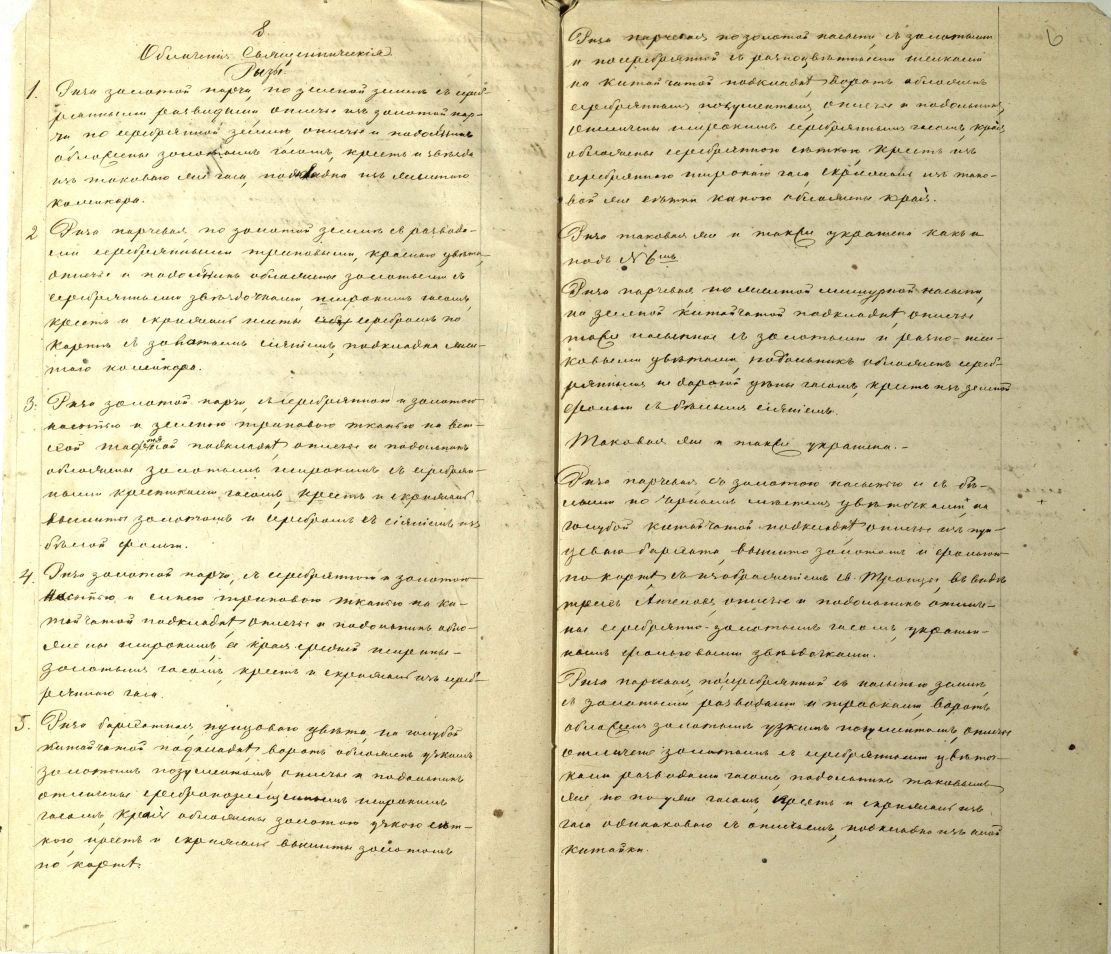 8.
Облаченія Священническія
Ризы
1. Риза золотой парчи, по зеленой землѣ съ сереб-
рянными разводами, оплечье изъ золотой пар-
чи по серебрянной землѣ, оплечье и подольникъ
обложены золотымъ гасомъ, крестъ и звѣзда
изъ таковаго же гаса, подкладка изъ желтаго
коленкора.
2 Риза парчевая, по золотой землѣ съ развода-
ми серебрянными травовыми, краснаго цвѣта,
оплечье и подольникъ обложены золотымъ съ
серебрянными звѣздочками широкимъ гасомъ,
крестъ и скрижаль шиты серебромъ по
картѣ съ золотымъ сіяніемъ, подкладка жел-
таго коленкора.
3. Риза золотой парчи, съ серебрянною и золотою
насыпью и зеленою травовою тканью на вет-
хой тафтяной подкладкѣ, оплечье и подольникъ
обложены золотымъ широкимъ съ серебрян-
ными крестиками гасомъ, крестъ и скрижаль
вышиты золотомъ и серебромъ съ сіяніемъ изъ
бѣлой фольги.
4. Риза золотой парчи, съ серебрянною и золотою
насыпью и синею травовою тканью на ки-
тайчатой подкладкѣ, оплечье и подольникъ обло-
жены широкимъ, а края средней ширины
золотымъ гасомъ, крестъ и скрижаль изъ сереб-
рянного гаса.
5. Риза бархатная, пунцоваго цвѣта, на голубой
китайчатой подкладкѣ, воротъ обложенъ узкимъ
золотымъ позументомъ, оплечье и подольникъ
отличены сребропозлащеннымъ широкимъ
гасомъ, края обложены золотою узкою сѣт-
кою, крестъ и скрижаль вышиты золотомъ
по картѣ.
6
Риза парчевая по золотой насыпи, съ золотыми
и посеребрянной съ разноцвѣтными шелками
на китайчатой подкладкѣ, воротъ обложенъ
серебряннымъ позументомъ, оплечье и подольникъ
отличены широкимъ серебряннымъ гасомъ, края
обложены серебрянною сѣткою, крестъ изъ
серебрянного широкаго гаса, скрижаль изъ тако-
вой же сѣтки какою обложены края.
Риза таковая же и также украшена какъ и
подъ № 6мъ
Риза парчевая по желтой мишурной насыпи,
на зеленой китайчатой подкладкѣ, оплечье
также насыпное съ золотыми и разно-шел-
ковыми цвѣтами, подольникъ обложенъ сереб-
ряннымъ не дорогой цѣны гасомъ, крестъ изъ зеленой
фольги съ бѣлымъ сіяніемъ.
Таковая же и также украшена.-
Риза парчевая съ золотою насыпью и съ бѣ-
лыми по чернымъ цвѣточками, на
голубой китайчатой подкладкѣ оплечье изъ пун-
цоваго бархата, вышито золотомъ и фольгою
по картѣ съ изображеніемъ Св. Троицы, въ видѣ
трехъ Ангеловъ, оплечье и подольникъ отличе-
ны серебряно-золотымъ гасомъ, украшен-
нымъ фольговыми звѣздочками.
Риза парчевая, посеребрянной съ насыпью землѣ,
съ золотыми разводами и травками, воротъ
обложенъ золотымъ узкимъ позументомъ, оплечье
отличено золотымъ съ серебрянными цвѣточ-
ками разводами гасомъ, подольникъ таковымъ
же, но по уже гасомъ, крестъ и скрижаль изъ
гаса одинаковаго съ оплечьемъ, подкладка изъ алой
китайки.